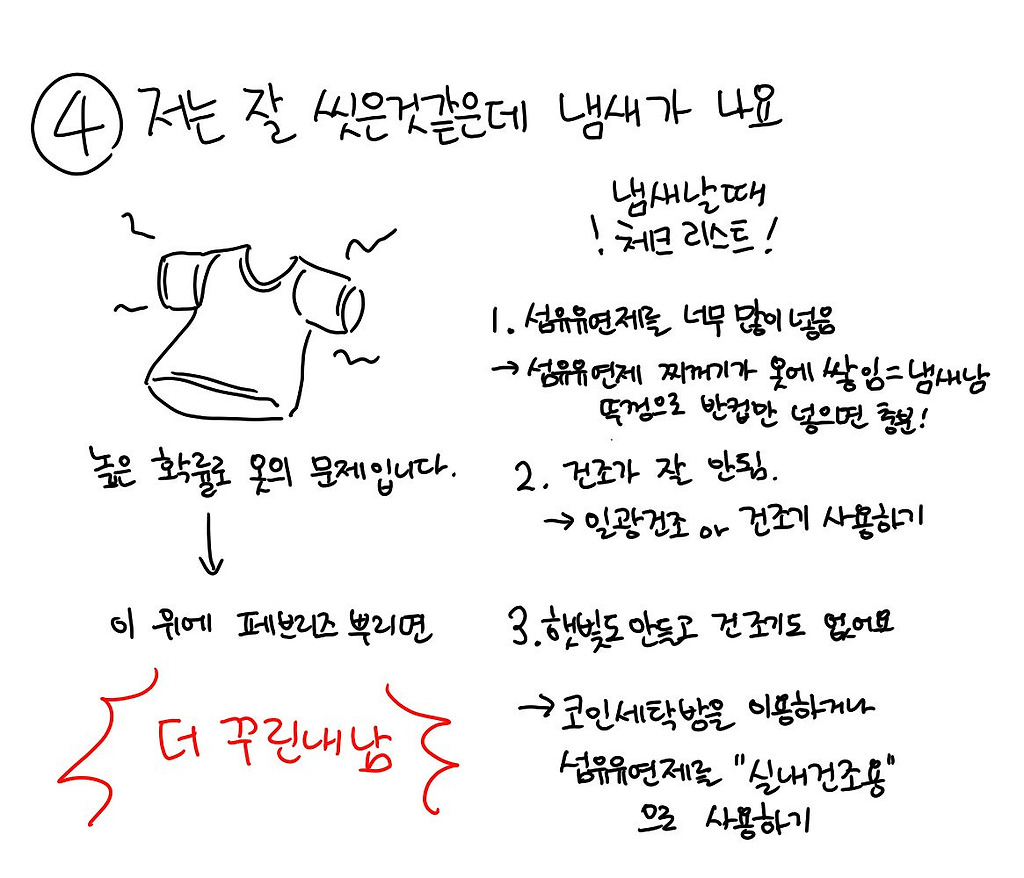 ④ 저는 잘 씻은것같은데 냄새가 나요
높은 확률로 옷의 문제입니다.
이 위에 페브리즈 뿌리면
더 꾸린내남
냄새날때
! 체크리스트!
1. 섬유유연제를 너무 많이 넣음
→ 섬유유연제 찌꺼기가 옷에 쌓임=냄새남
뚜껑으로 반컵만 넣으면 충분!
2. 건조가 잘 안됨.
→ 일광건조 or 건조기 사용하기
3. 햇빛도 안들고 건조기도 없어요
→ 코인세탁방을 이용하거나
섬유유연제를 "실내건조용"
으로 사용하기